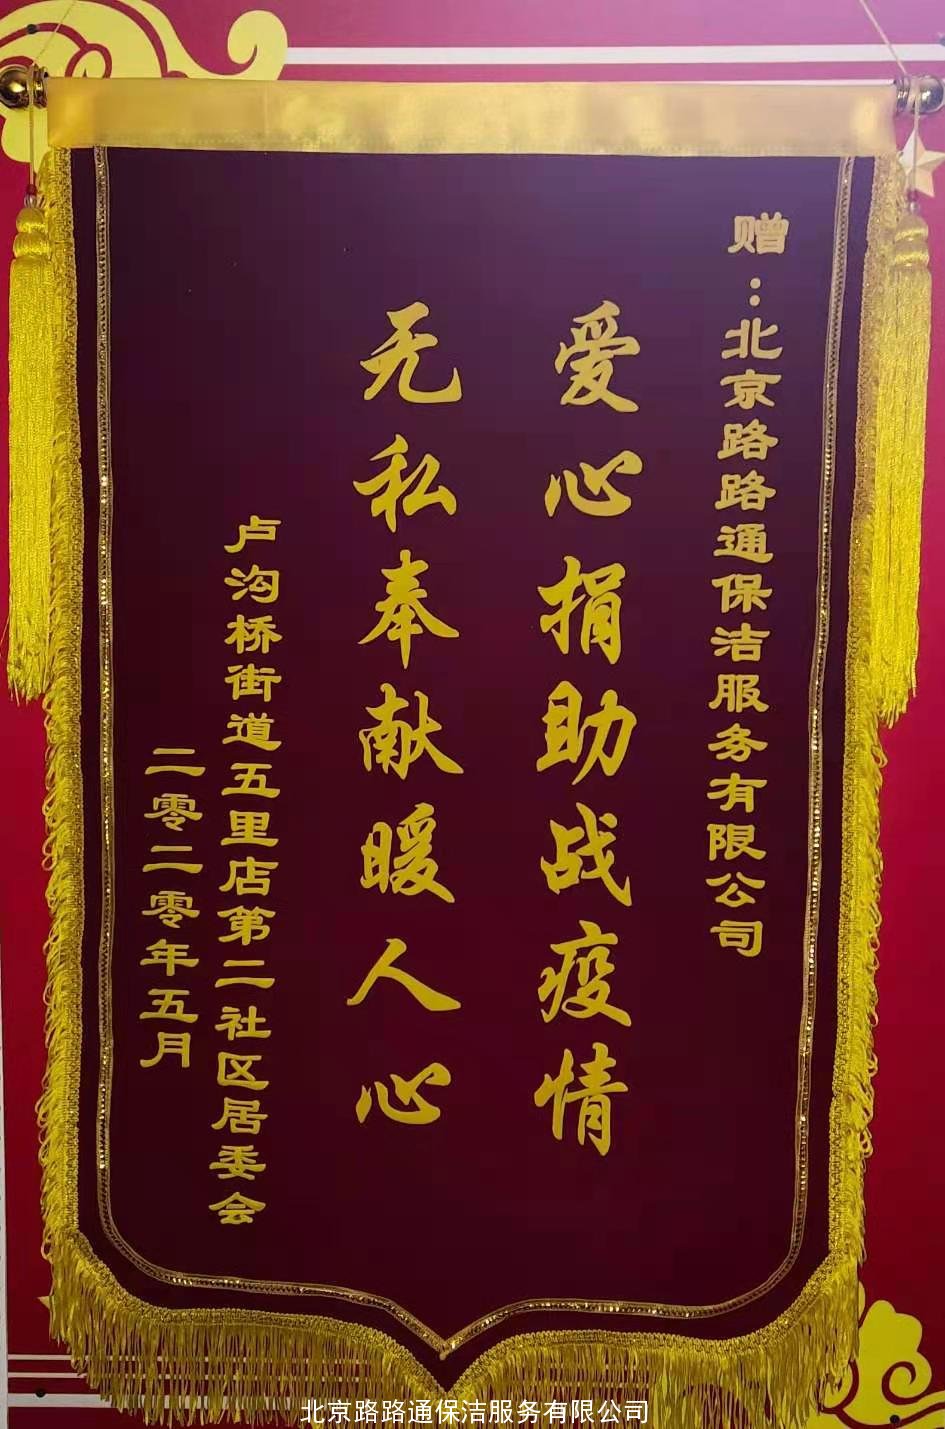 赠：北京路路通保洁服务有限公司
爱心捐助战疫情
无私奉献暖人心
卢沟桥街道五里店第二社区居委会
二零二零年五月
北京路路通保洁服务有限公司